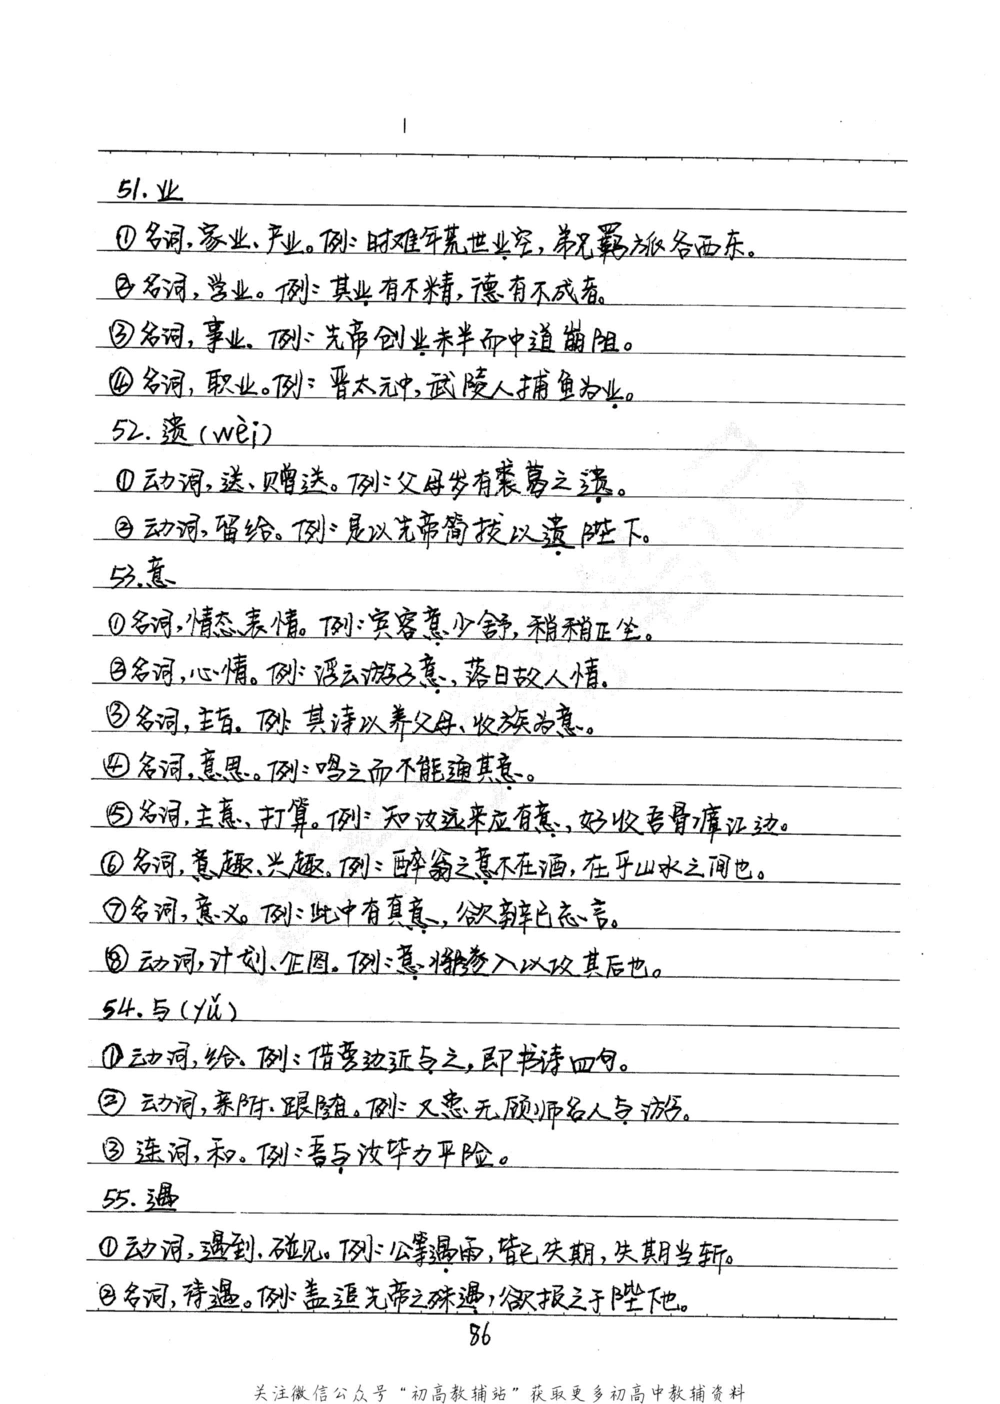 51.业
①名词,家业、产业。例:时难年荒世业空,弟兄羁旅各西东。
②名词,学业。例:其业有不精,德有不成者。
③名词,事业。例:先帝创业未半而中道崩阻。
④名词,职业。例:晋太元中,武陵人捕鱼为业。
52.遗(wèi)
①动词,送、赠送。例:父母岁有裘葛之遗。
②动词,留给。例:是以先帝简拔以遗陛下。
53.意
①名词,情态、表情。例:宾客意少舒,稍稍正坐。
②名词,心情。例:浮云游子意,落日故人情。
③名词,主旨。例:其诗以养父母、收族为意。
④名词,意思。例:鸣之而不能通其意。
⑤名词,主意、打算。例:知汝远来应有意,好收吾骨瘴江边。
⑥名词,意趣、兴趣。例:醉翁之意不在酒,在乎山水之间也。
⑦名词,意义。例:此中有真意,欲辨已忘言。
⑧动词,计划、企图。例:意将隧入以攻其后也。
54.与(yǔ)
①动词,给。例:借旁边近与之,即书诗四句。
②动词,亲附、跟随。例:又患无硕师名人与游。
③连词,和。例:吾与汝毕力平险。
55.遇
①动词,遇到、碰见。例:公等遇雨,皆已失期,失期当斩。
②名词,待遇。例:盖追先帝之殊遇,欲报之于陛下也。
86
关注微信公众号“初高教辅站”获取更多初高中教辅资料